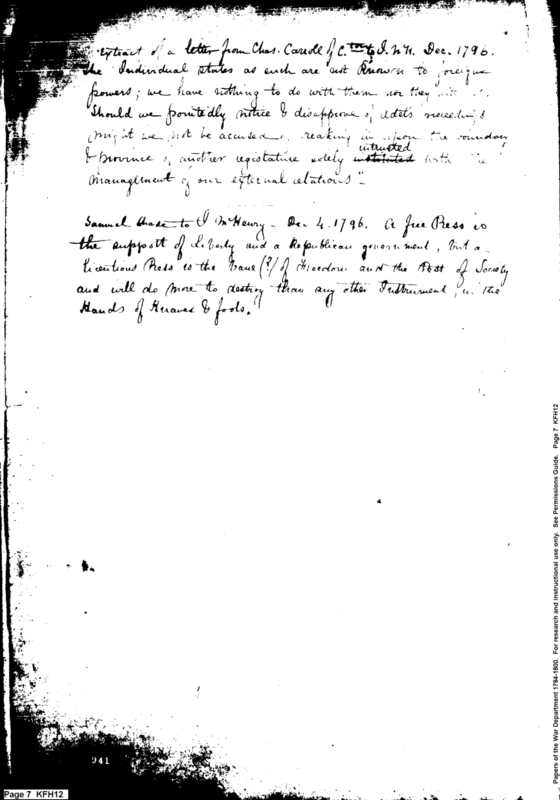 Extract of a letter from Chas. Carroll of C. to J. McH. Dec. 1796.
The Individual states as such are not Known to foreign
powers; we have nothing to do with them nor they
Should we pointedly notice & disapprove of Adets proceedings
might we not be accused of breaking in upon the boundary
& Province of another legislature solely instituted intrusted with the
management of our external relations"
Samuel Chase to J McHenry - Dec 4. 1796. A free Press is
the support of Liberty and a Republican government, but a
licentious Press is the bane (?) of Freedom and the Pest of Society
and will do more to destroy than any other Instrument, in the
Hands of Knaves & fools.
941
Page 7 KFH12
Papers of the War Department 1784-1800. For research and instructional use only. See Permissions Guide. Page 7 KFH12